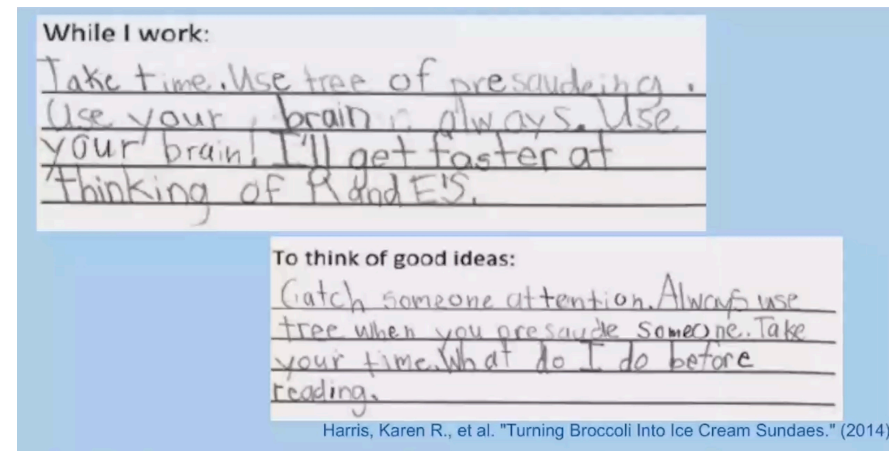 While I work:
Take time. Use tree of presaudeing.
Use your brain always. Use
your brain! I'll get faster at
thinking of R and E'S.
To think of good ideas:
Catch someone attention. Always use
tree when you presaude someone. Take
your time. What do I do before
reading.
Harris, Karen R., et al. "Turning Broccoli Into Ice Cream Sundaes." (2014)